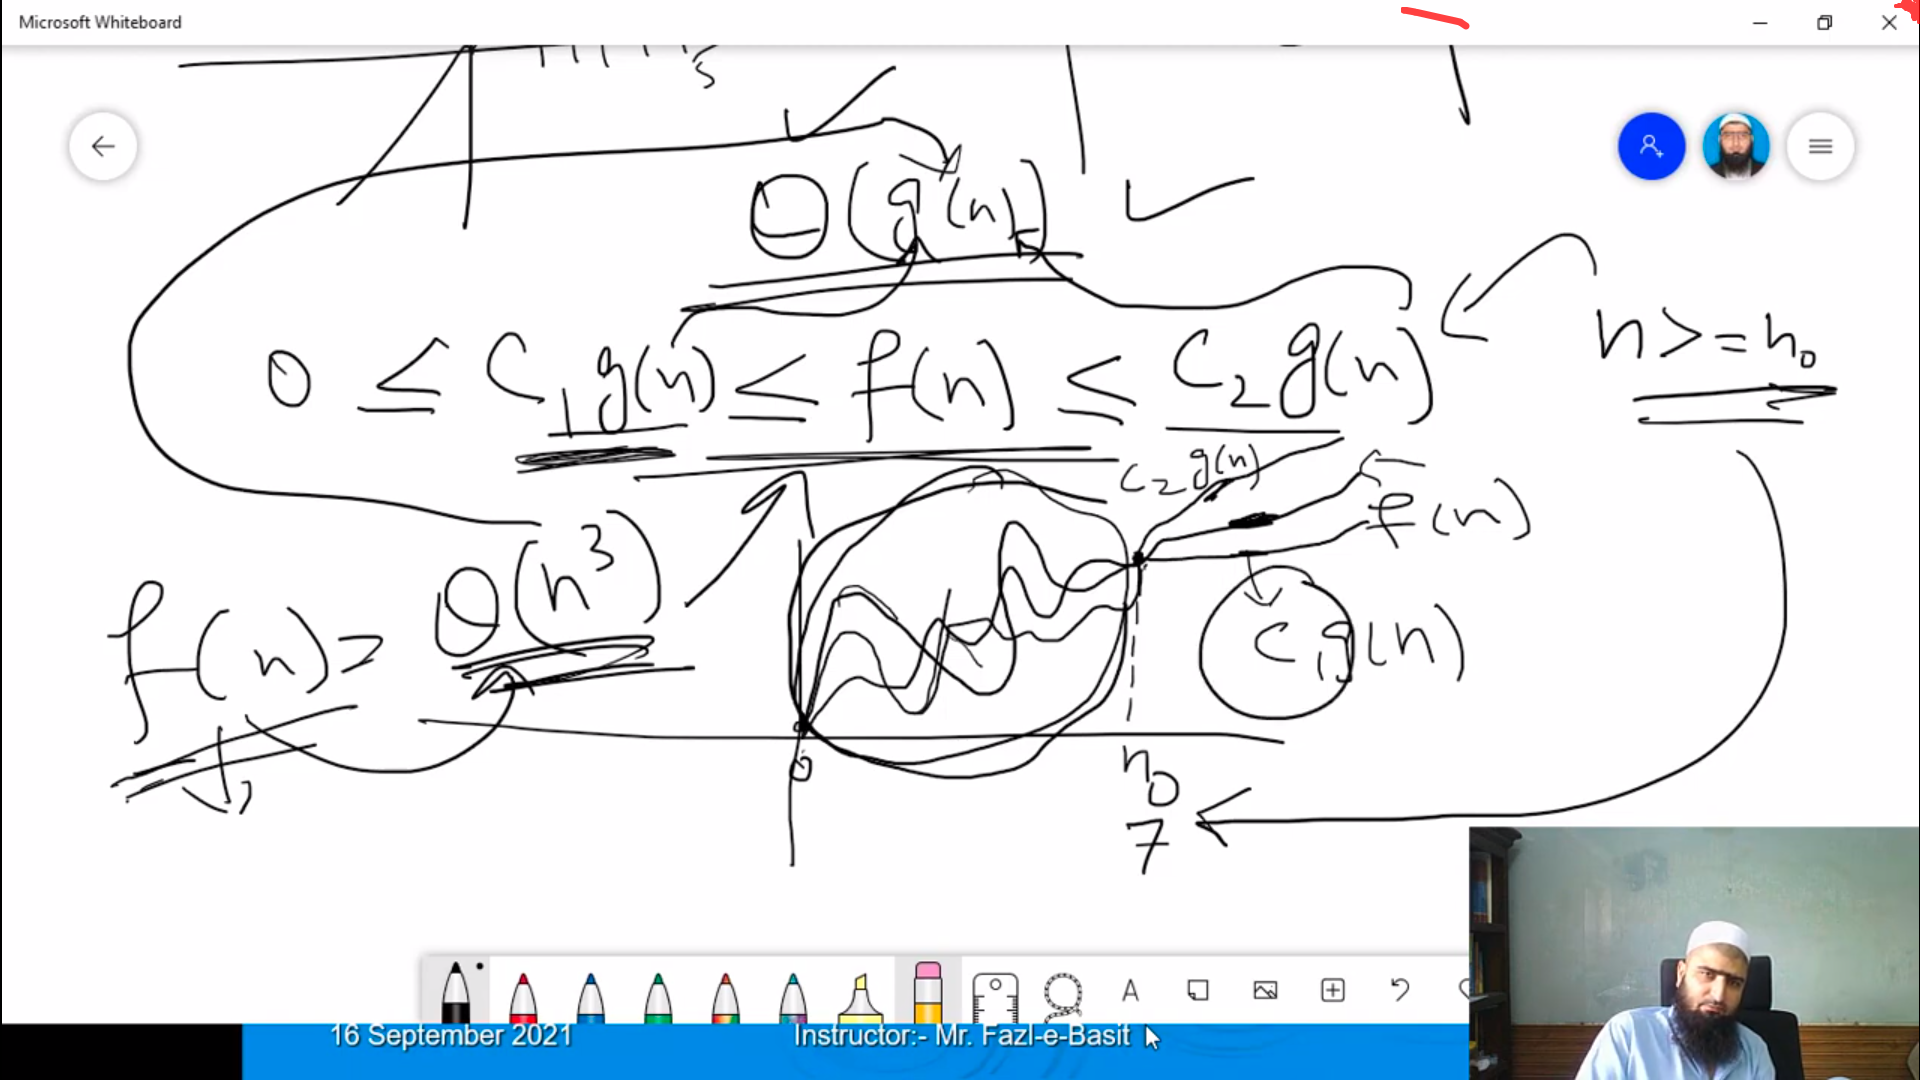 Microsoft Whiteboard
5
Θ(g(n))
0 ≤ C₁g(n) ≤ f(n) ≤ C₂g(n)
n >= n₀
C₂g(n)
f(n)
f(n) = Θ(n³)
C₁g(n)
0
n₀
7
16 September 2021
Instructor:- Mr. Fazl-e-Basit